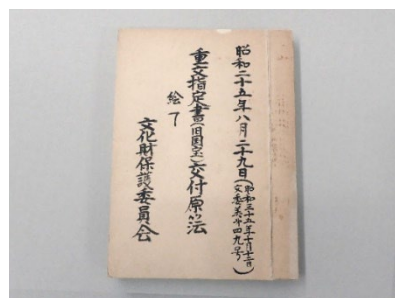 昭和二十五年八月二十九日(昭和三十五年十月十二日
文委美第四九号)
重文指定書(旧国宝)交付原簿
絵 了
文化財保護委員会